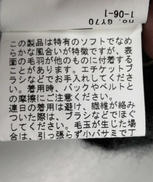 1-06-1
この製品は特有のソフトでなめ
らかな風合いが特徴ですが、表
面の毛羽が他のものに付着する
ことがあります。エチケットブ
ラシなどでお手入れしてくださ
い。着用時、バックやベルトと
の摩擦にご注意ください。
連日の着用は避け、繊維が絡み
ついた際は、ブラシなどでほぐ
してください。毛玉が生じた場
合は、引っ張らず小バサミで丁